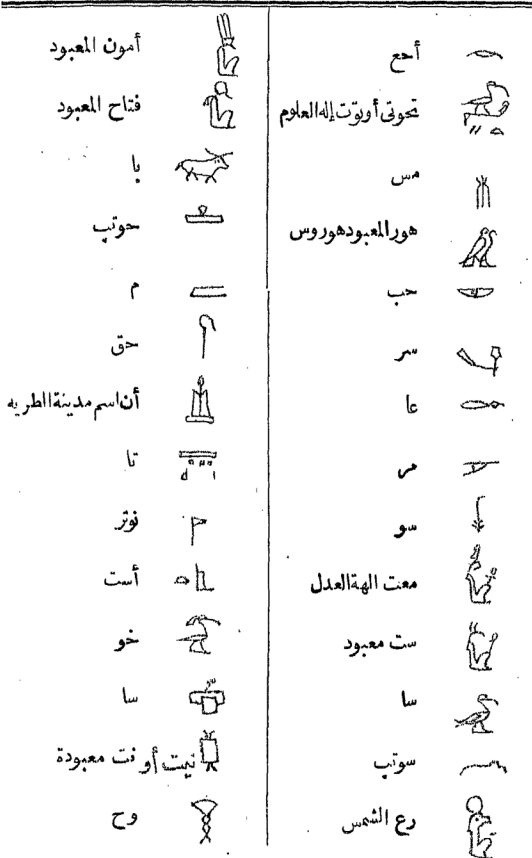 أحع
تحوتى أوتوت إله العلوم
مس
هور المعبود هوروس
حب
سر
عا
مر
سو
معت الهة العدل
ست معبود
سا
سوتب
رع الشمس
أمون المعبود
فتاح المعبود
با
حوتب
م
حق
أن اسم مدينة الطريه
تا
نوتر
أست
خو
سا
نيت أو نت معبودة
وح